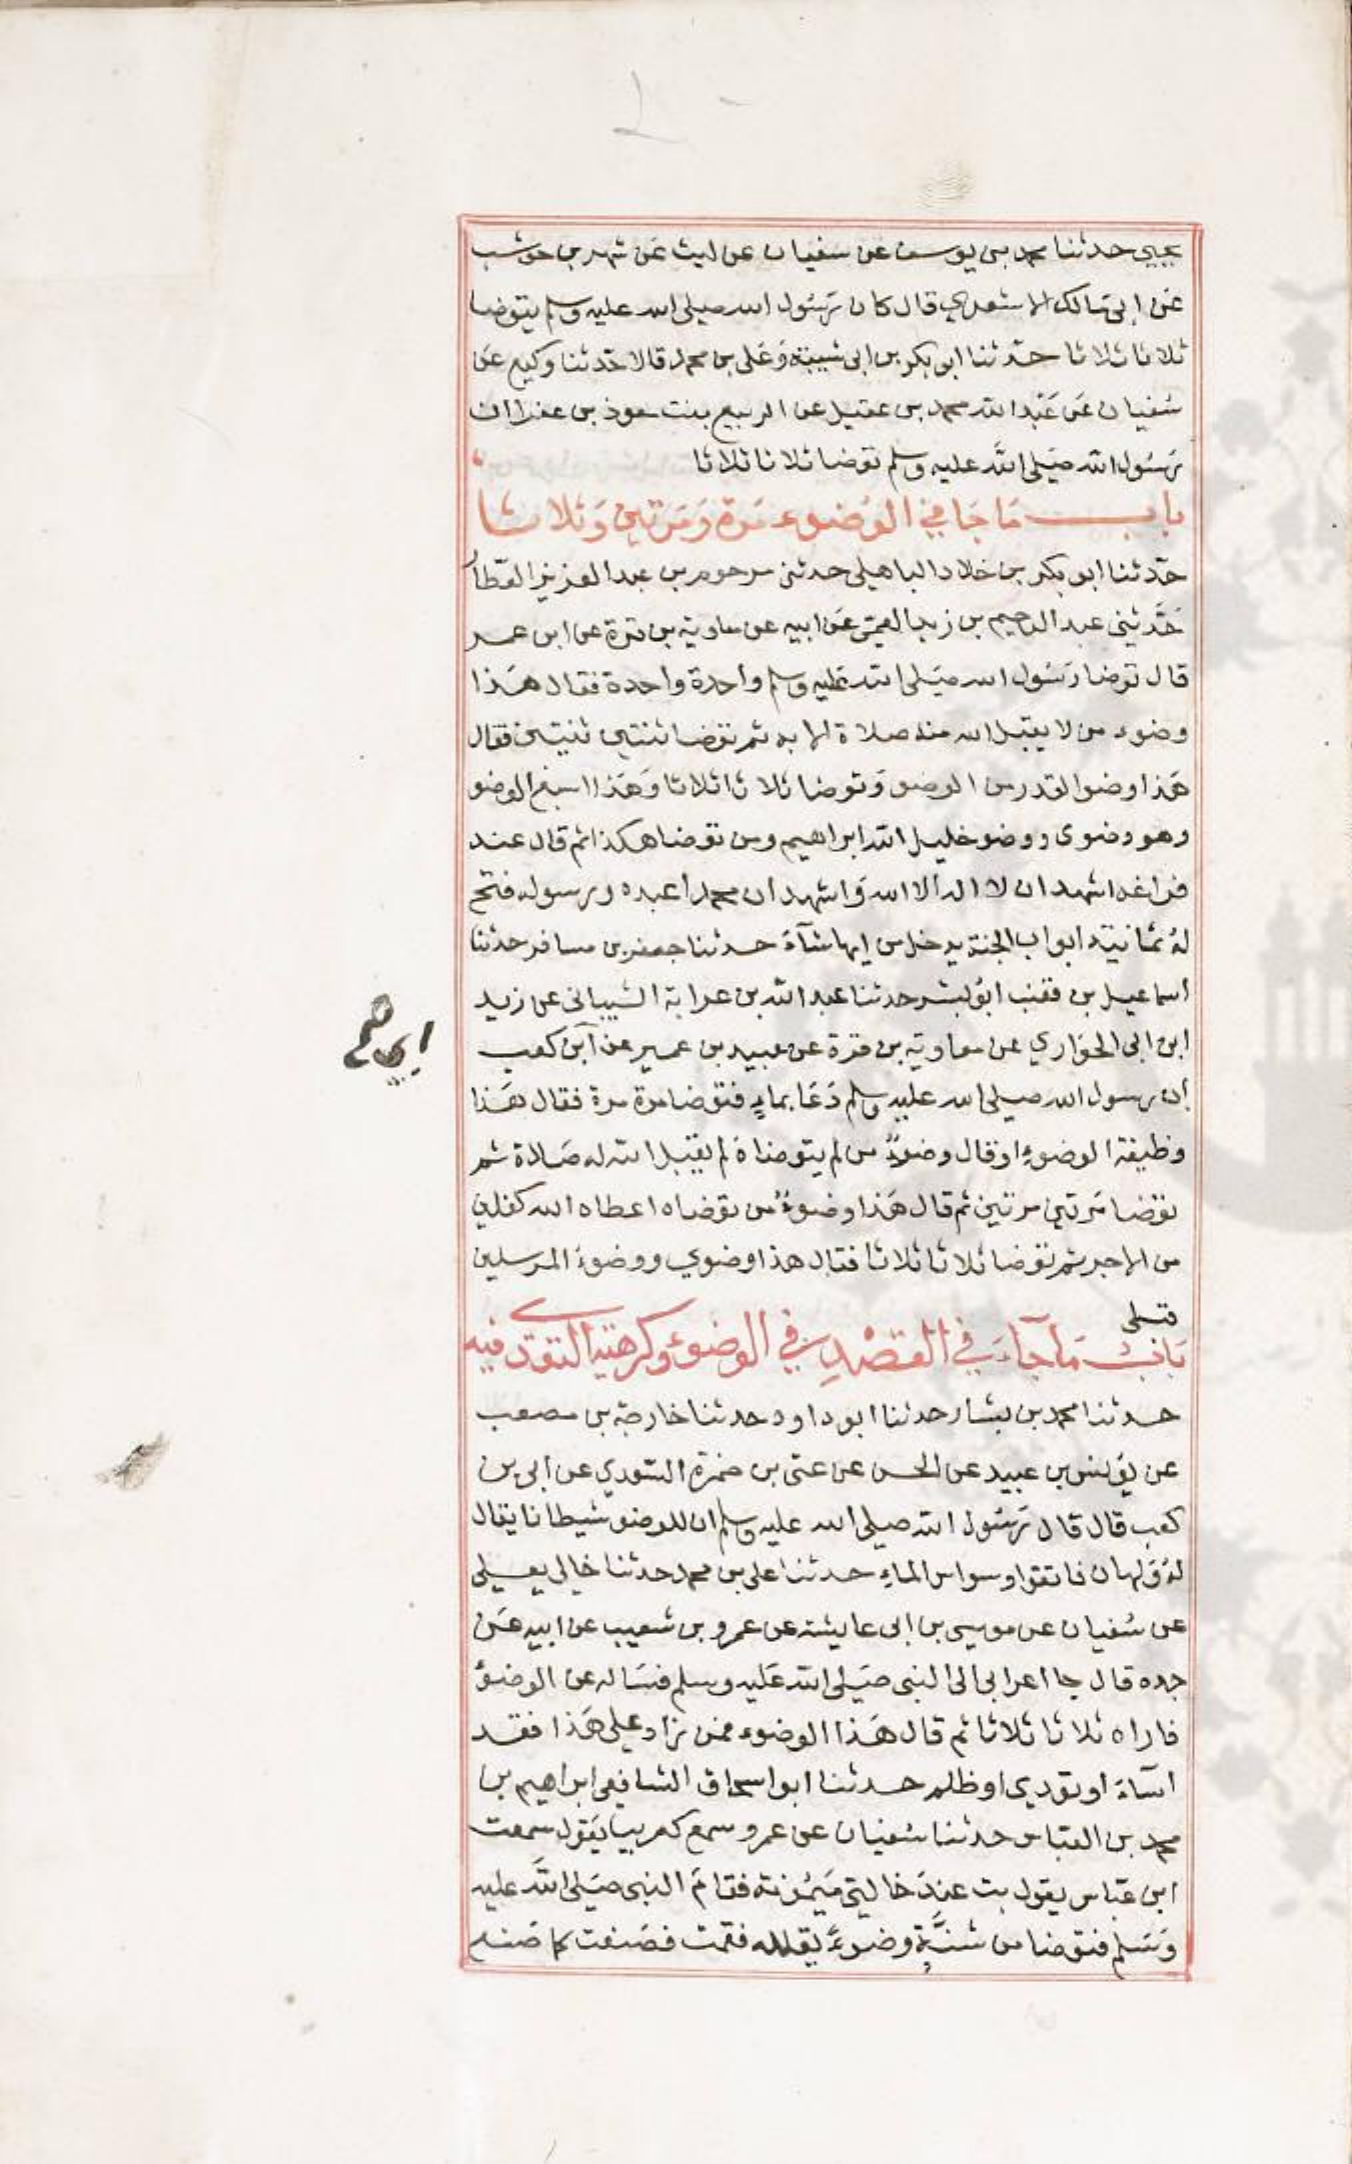 يحيي حدثنا محمد بن يوسف عن سفيان عن ليث عن شهر بن حوشب
عن ابي مالك الاشعري قال كان رسول الله صلى الله عليه وسلم يتوضا
ثلاثا ثلاثا حدثنا ابو بكر بن ابي شيبة وعلي بن محمد قالا حدثنا وكيع عن
سفيان عن عبد الله محمد بن عقيل عن الربيع بنت معوذ بن عفرا ان
رسول الله صلى الله عليه وسلم توضا ثلاثا ثلاثا
باب ما جا في الوضوء مرة ومرتين وثلاثا
حدثنا ابو بكر بن خلاد الباهلي حدثني مرحوم بن عبد العزيز القطا
حدثني عبد الرحيم بن زيد العمي عن ابيه عن معاوية بن قرة عن ابن عمر
قال توضا رسول الله صلى الله عليه وسلم واحدة واحدة فقال هذا
وضوء من لا يقبل الله منه صلاة الا به ثم توضا ثنتين ثنتين فقال
هذا وضوا القدر من الوضو وتوضا ثلاثا ثلاثا وهذا اسبغ الوضو
وهو وضوى ووضو خليل الله ابراهيم ومن توضا هكذا ثم قال عند
فراغه اشهد ان لا اله الا الله واشهد ان محمدا عبده ورسوله فتح
له ثمانية ابواب الجنة يدخل من ايها شآء حدثنا جعفر بن مسافر حدثنا
اسماعيل بن قعنب ابو بشر حدثنا عبد الله بن عرابة الشيباني عن زيد
ابن ابي الحواري عن معاوية بن قرة عن عبيد بن عمير عن ابن كعب
ابي صح
ان رسول الله صلى الله عليه وسلم دعا بماء فتوضا مرة مرة فقال هذا
وظيفة الوضوء او قال وضوء من لم يتوضاه لم يقبل الله له صلاة ثم
توضا مرتين مرتين ثم قال هذا وضوء من توضاه اعطاه الله كفلين
من الاجر ثم توضا ثلاثا ثلاثا فقال هذا وضوي ووضوء المرسلين
قبلى
باب ما جآء في القصد في الوضوء وكرهية التعدى فيه
حدثنا محمد بن بشار حدثنا ابو داود حدثنا خارجة بن مصعب
عن يونس بن عبيد عن الحسن عن عتى بن ضمرة السعدي عن ابى بن
كعب قال قال رسول الله صلى الله عليه وسلم ان للوضو شيطانا يقال
له ولهان فاتقوا وسواس الماء حدثنا علي بن محمد حدثنا خالي يعلى
عن سفيان عن موسى بن ابي عايشة عن عمرو بن شعيب عن ابيه عن
جده قال جا اعرابي الى النبي صلى الله عليه وسلم فساله عن الوضو
فاراه ثلاثا ثلاثا ثم قال هذا الوضوء فمن زاد على هذا فقد
اسآء او تعدي او ظلم حدثنا ابو اسحاق الشافعي ابراهيم بن
محمد بن العباس حدثنا سفيان عن عمرو سمع كريبا يقول سمعت
ابن عباس يقول بت عند خالتي ميمونة فقام النبي صلى الله عليه
وسلم فتوضا من شنة وضوءا يقلله فقمت فصنعت كما صنع